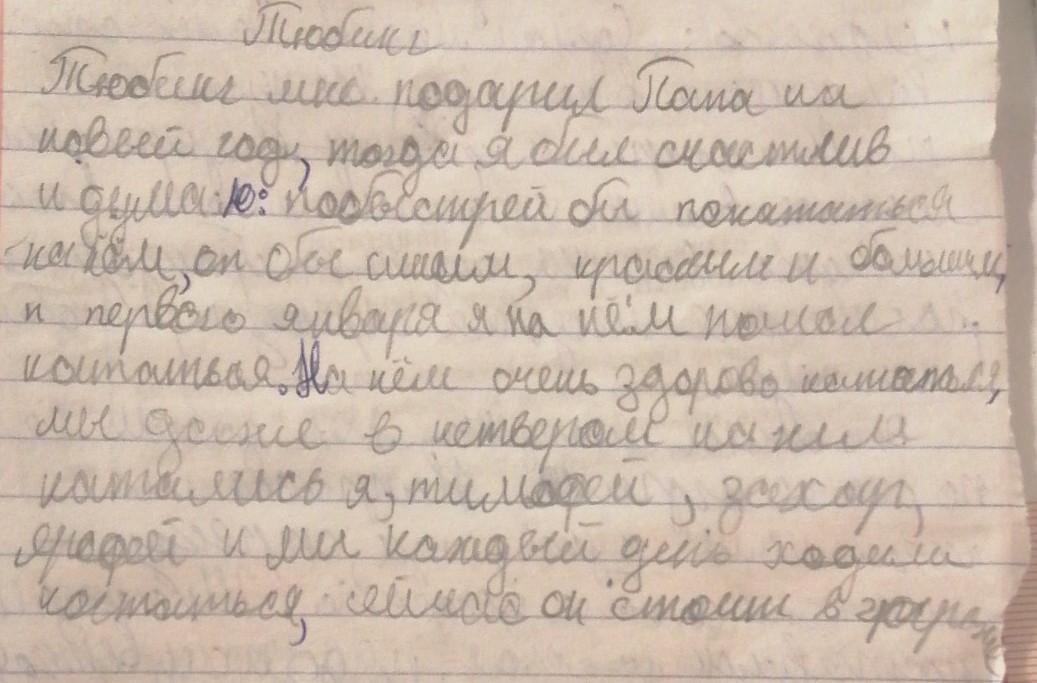 Тюбинг
Тюбинг мне подарил Папа на
новый год, тогда я был счастлив
и думаю: пообыстрей бы покататься
на нём, он был синим, красным и большим,
и первого января я на нём пошол
кататься. На нём очень здорово кататься,
мы даже в четвером на нём
катались я, тимофей, захар,
ерофей и мы каждый день ходили
кататься, сейчас он стоит в гараже